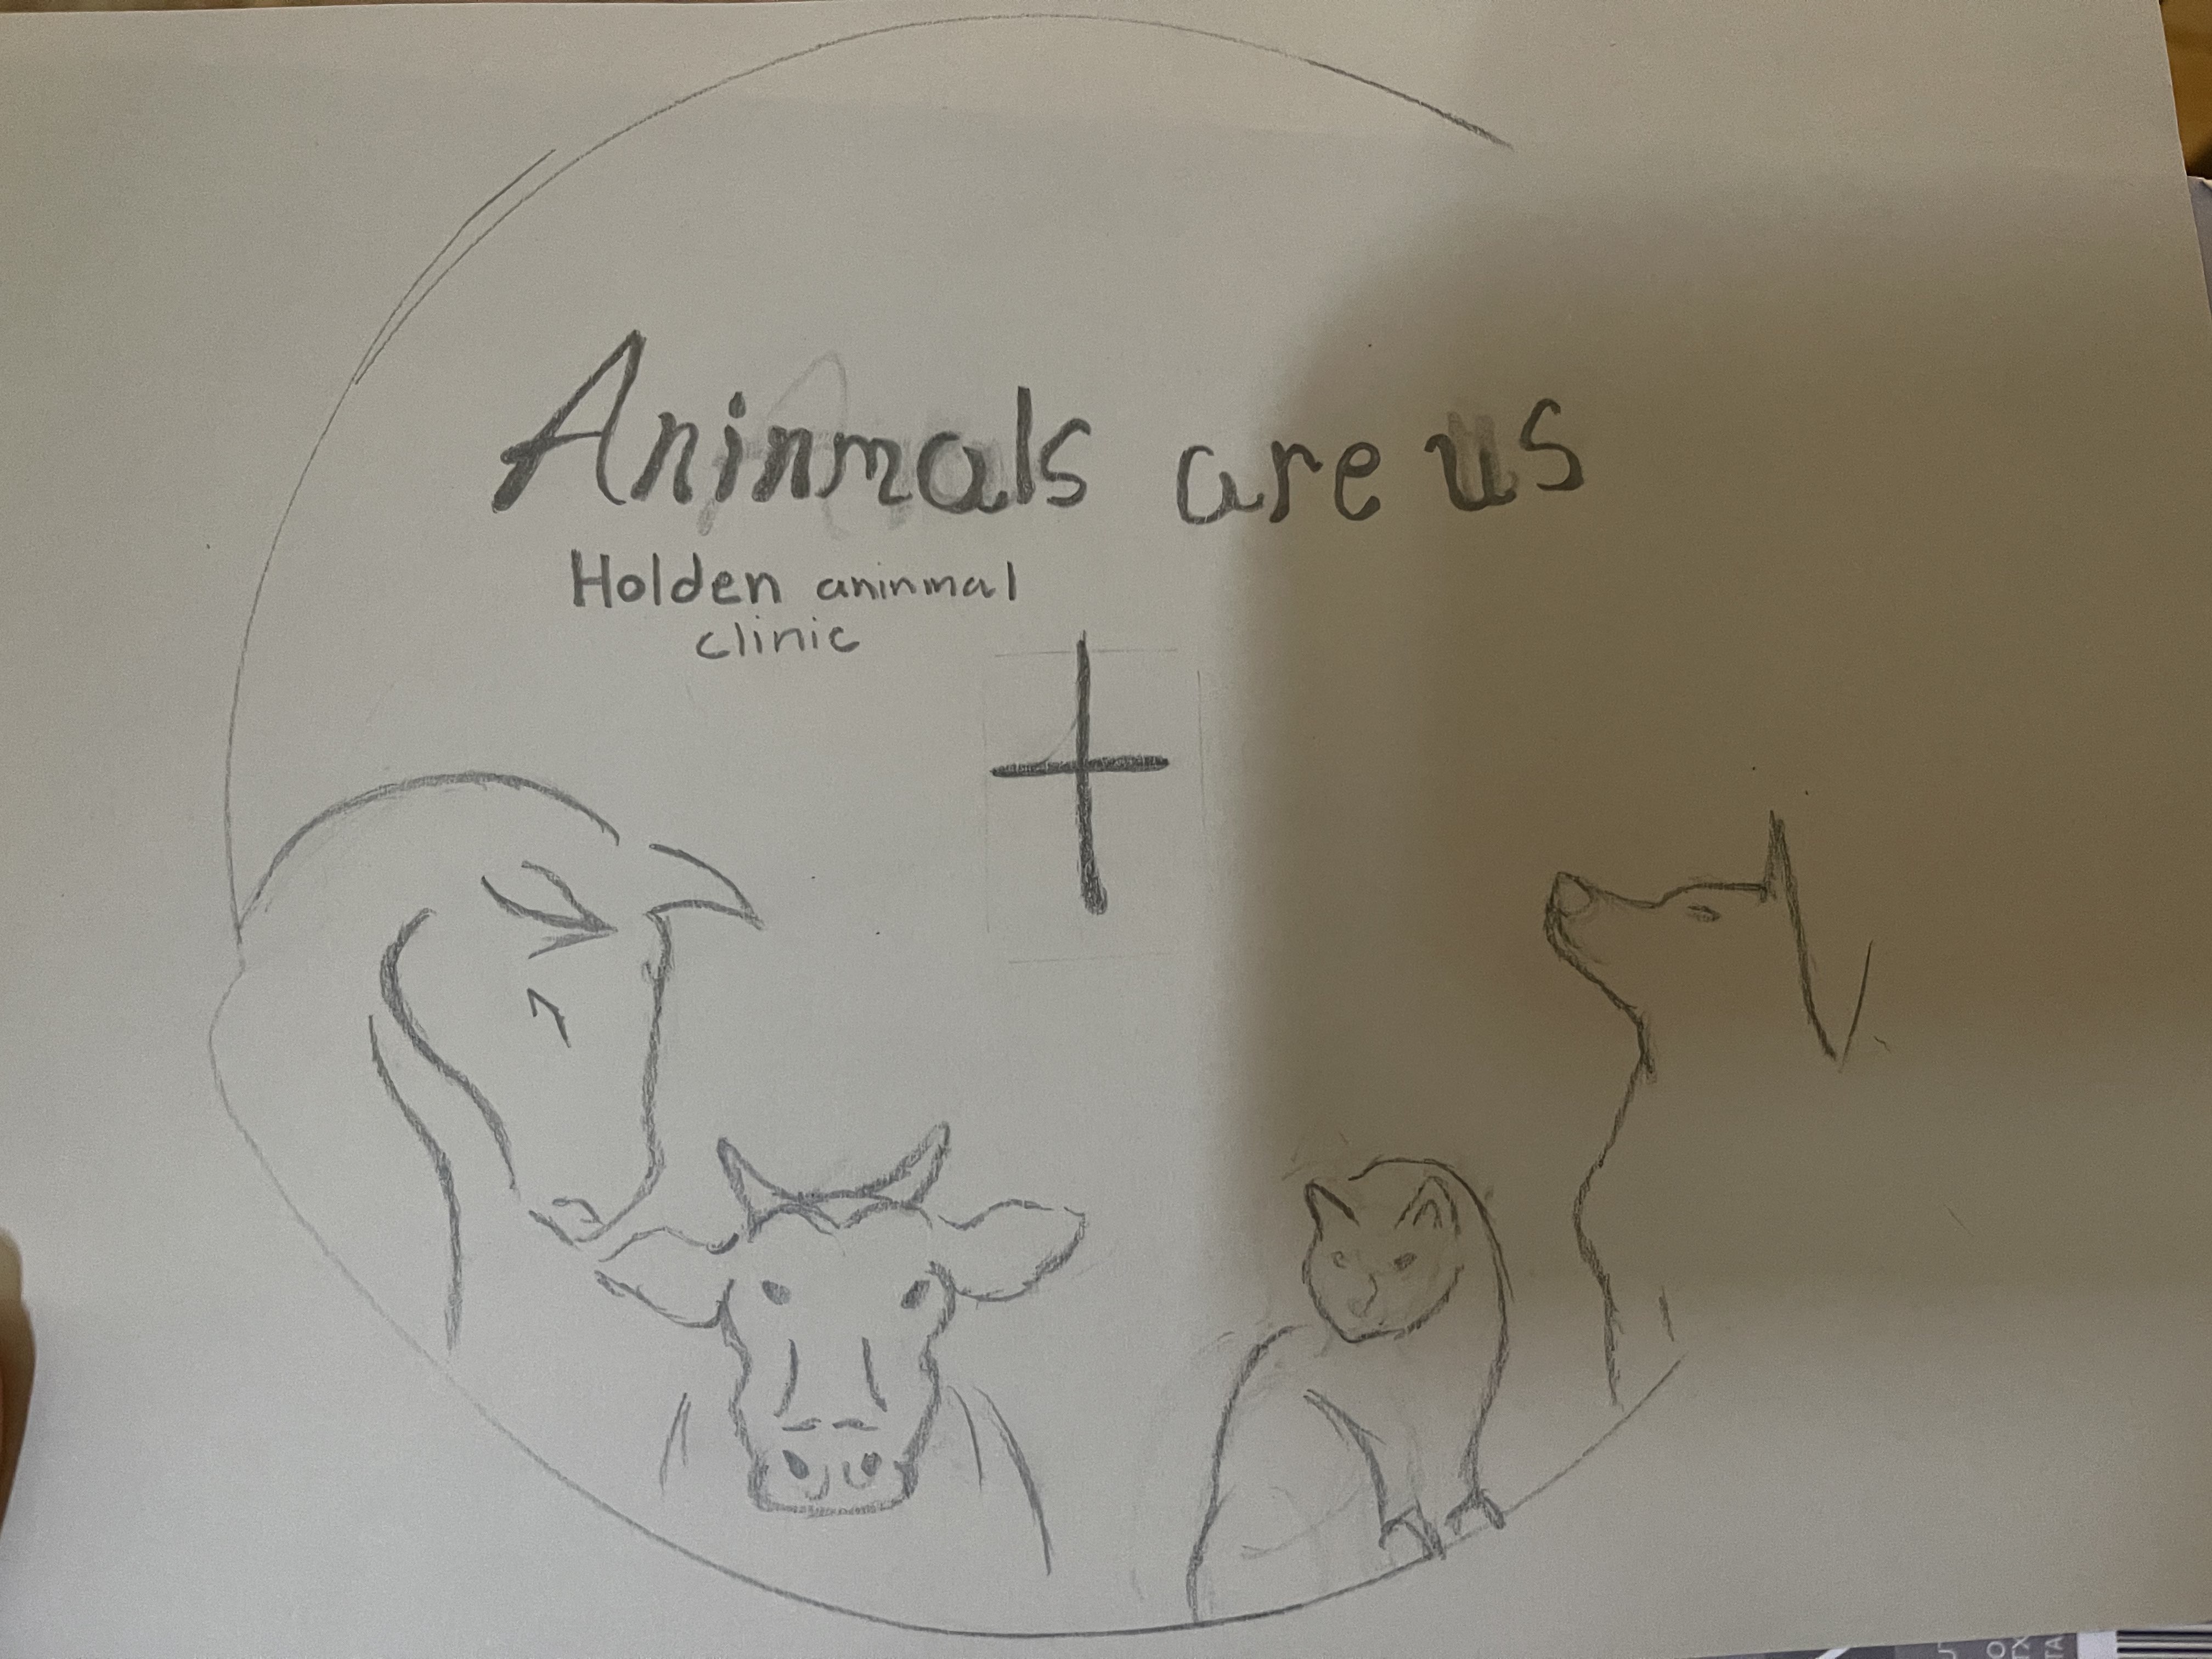 Aninmals are us
Holden aninmal
clinic